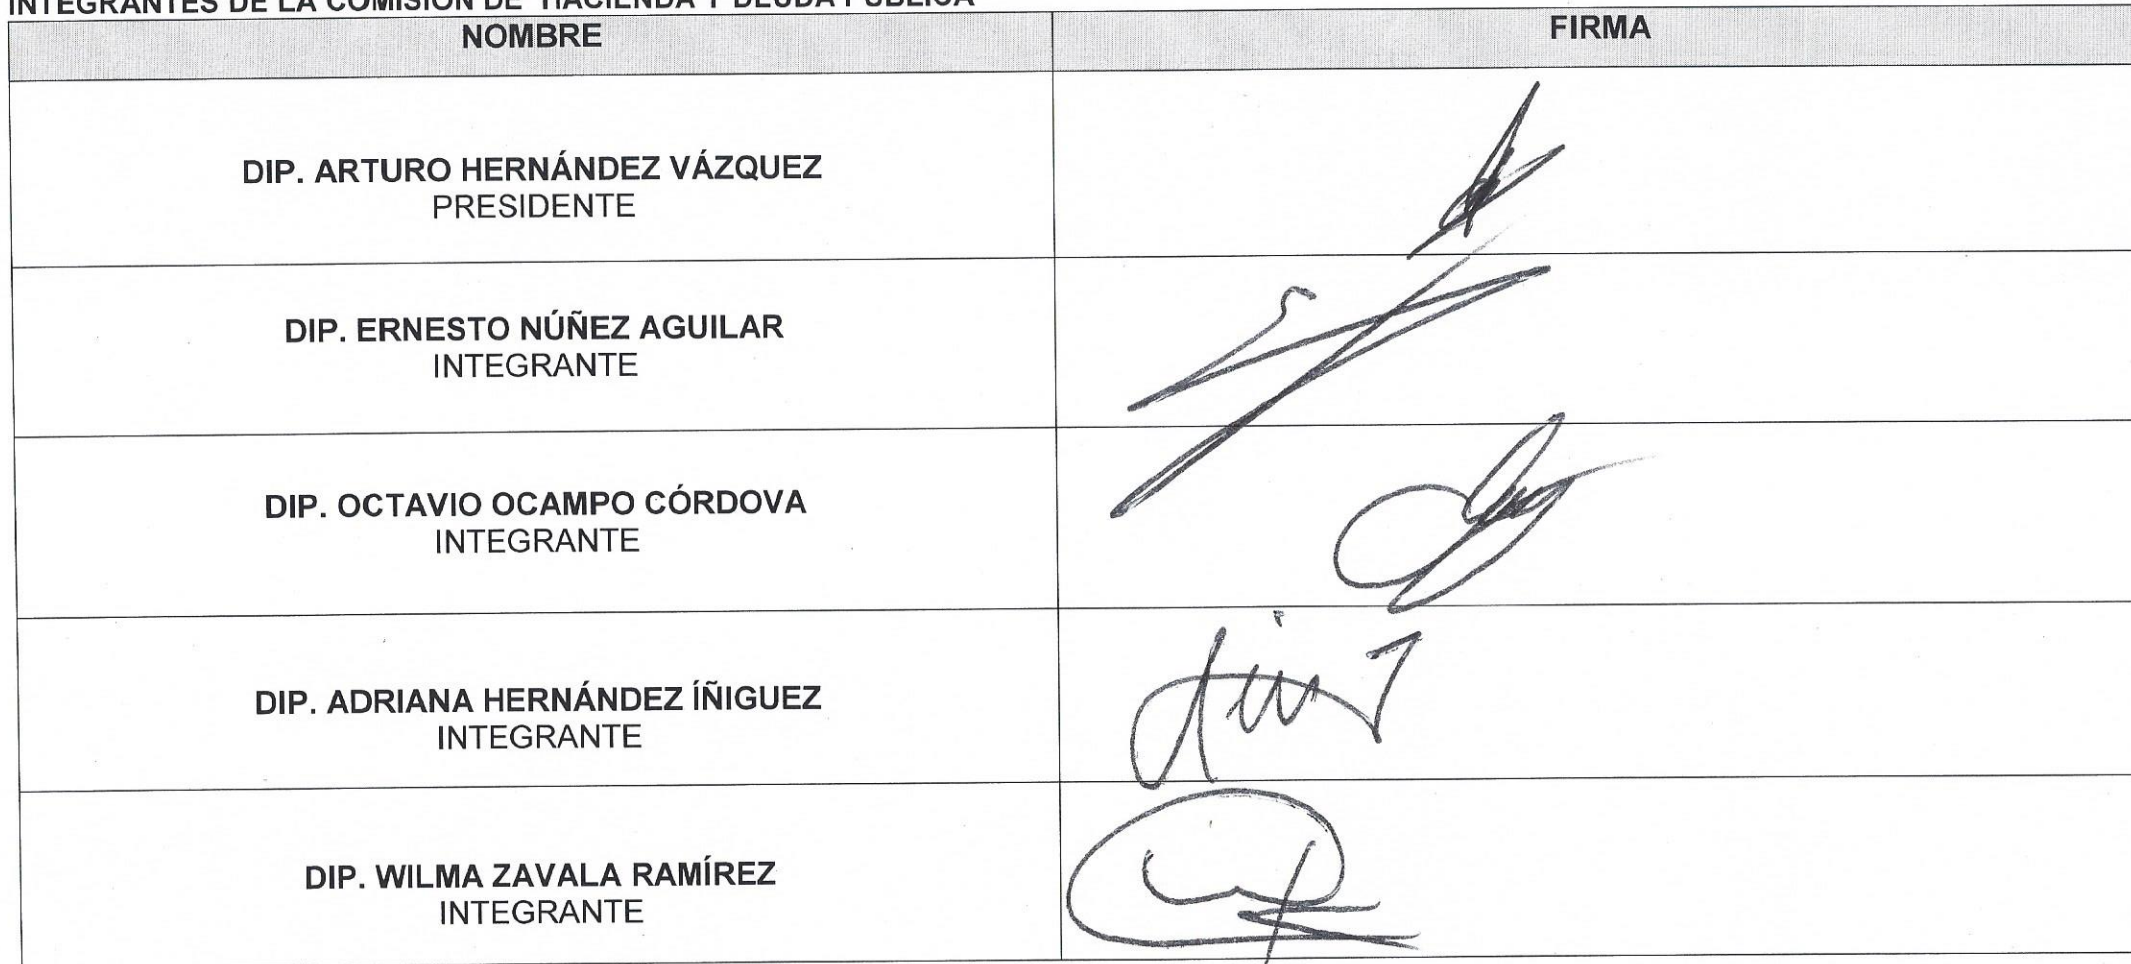 INTEGRANTES DE LA COMISIÓN DE HACIENDA Y DEUDA PÚBLICA
NOMBRE
FIRMA
DIP. ARTURO HERNÁNDEZ VÁZQUEZ
PRESIDENTE
DIP. ERNESTO NÚÑEZ AGUILAR
INTEGRANTE
DIP. OCTAVIO OCAMPO CÓRDOVA
INTEGRANTE
DIP. ADRIANA HERNÁNDEZ ÍÑIGUEZ
INTEGRANTE
DIP. WILMA ZAVALA RAMÍREZ
INTEGRANTE